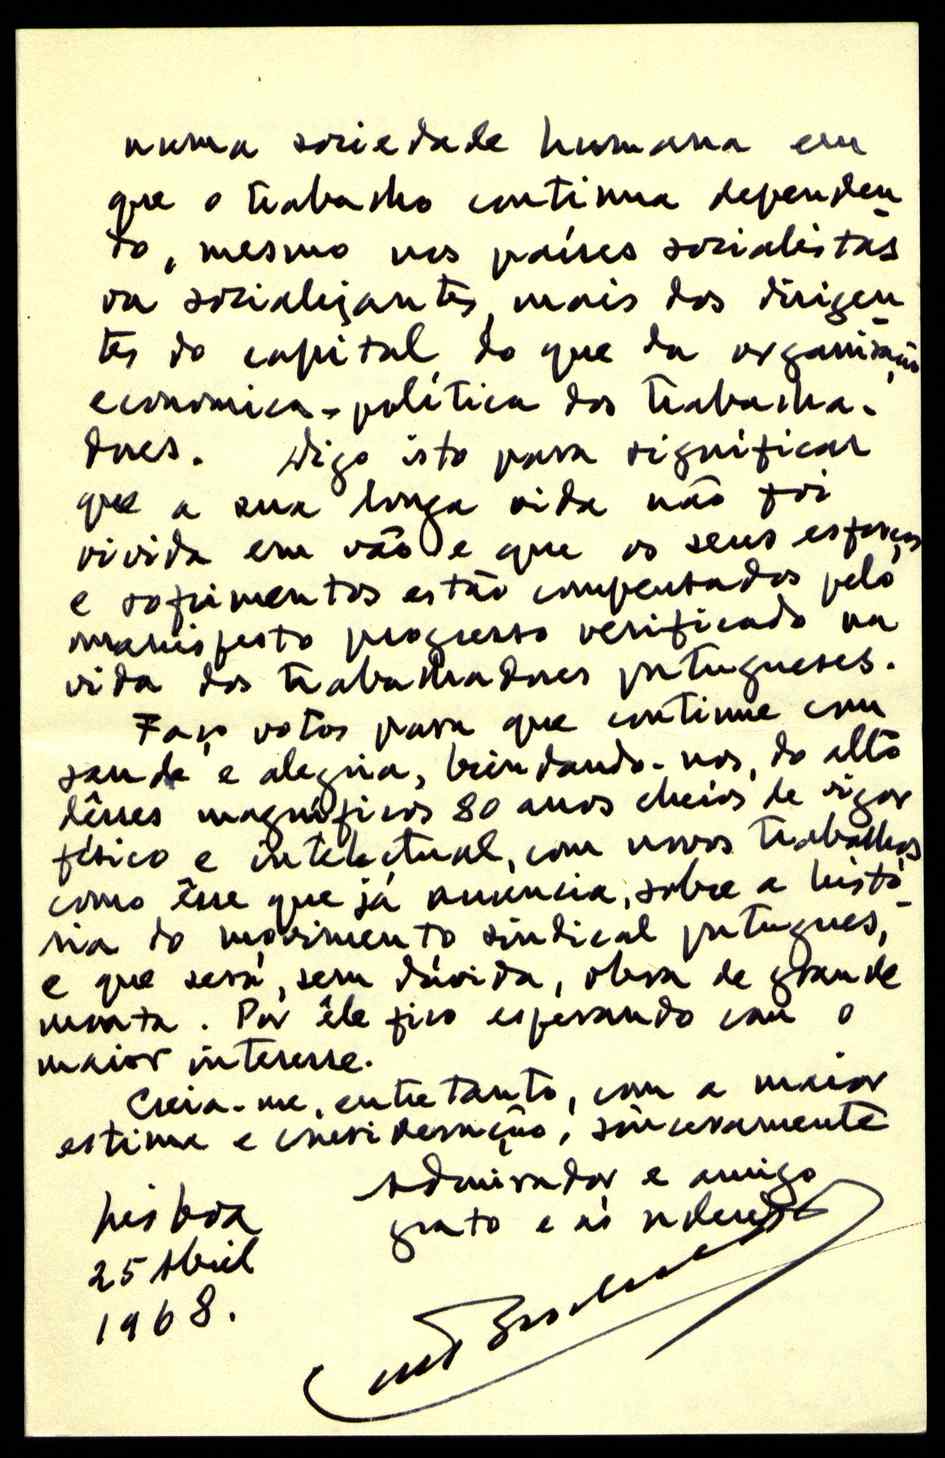 numa sociedade humana em
que o trabalho continua dependen
do, mesmo nos países socialistas
ou socialiçantes, mais dos dirigen
tes do capital do que da organização
economica-política dos trabalha-
dores. Digo isto para significar
que a sua longa vida não foi
vivida em vão e que os seus esforços
e sofrimentos estão compensados pelo
manifesto progresso verificado na
vida dos trabalhadores portugueses.
Faço votos para que continue com
saude e alegria, brindando-nos, do alto
dêsses magníficos 80 anos cheios de vigor
físico e intelectual, com novos trabalhos
como êsse que já anuncia, sobre a histó
ria do movimento sindical portugues,
e que será, sem dúvida, obra de grande
monta. Por êle fico esperando com o
maior interesse.
Creia-me, entretanto, com a maior
estima e consideração, sinceramente
Admirador e amigo
grato e às ordens
Lisboa
25 Abril
1968.